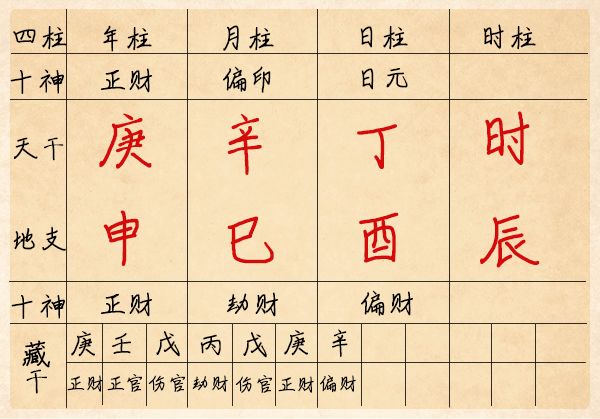 四柱 年柱 月柱 日柱 时柱
十神 正财 偏印 日元
天干 庚 辛 丁 时
地支 申 巳 酉 辰
十神 正财 劫财 偏财
藏干 庚 壬 戊 丙 戊 庚 辛
正财 正官 伤官 劫财 伤官 正财 偏财